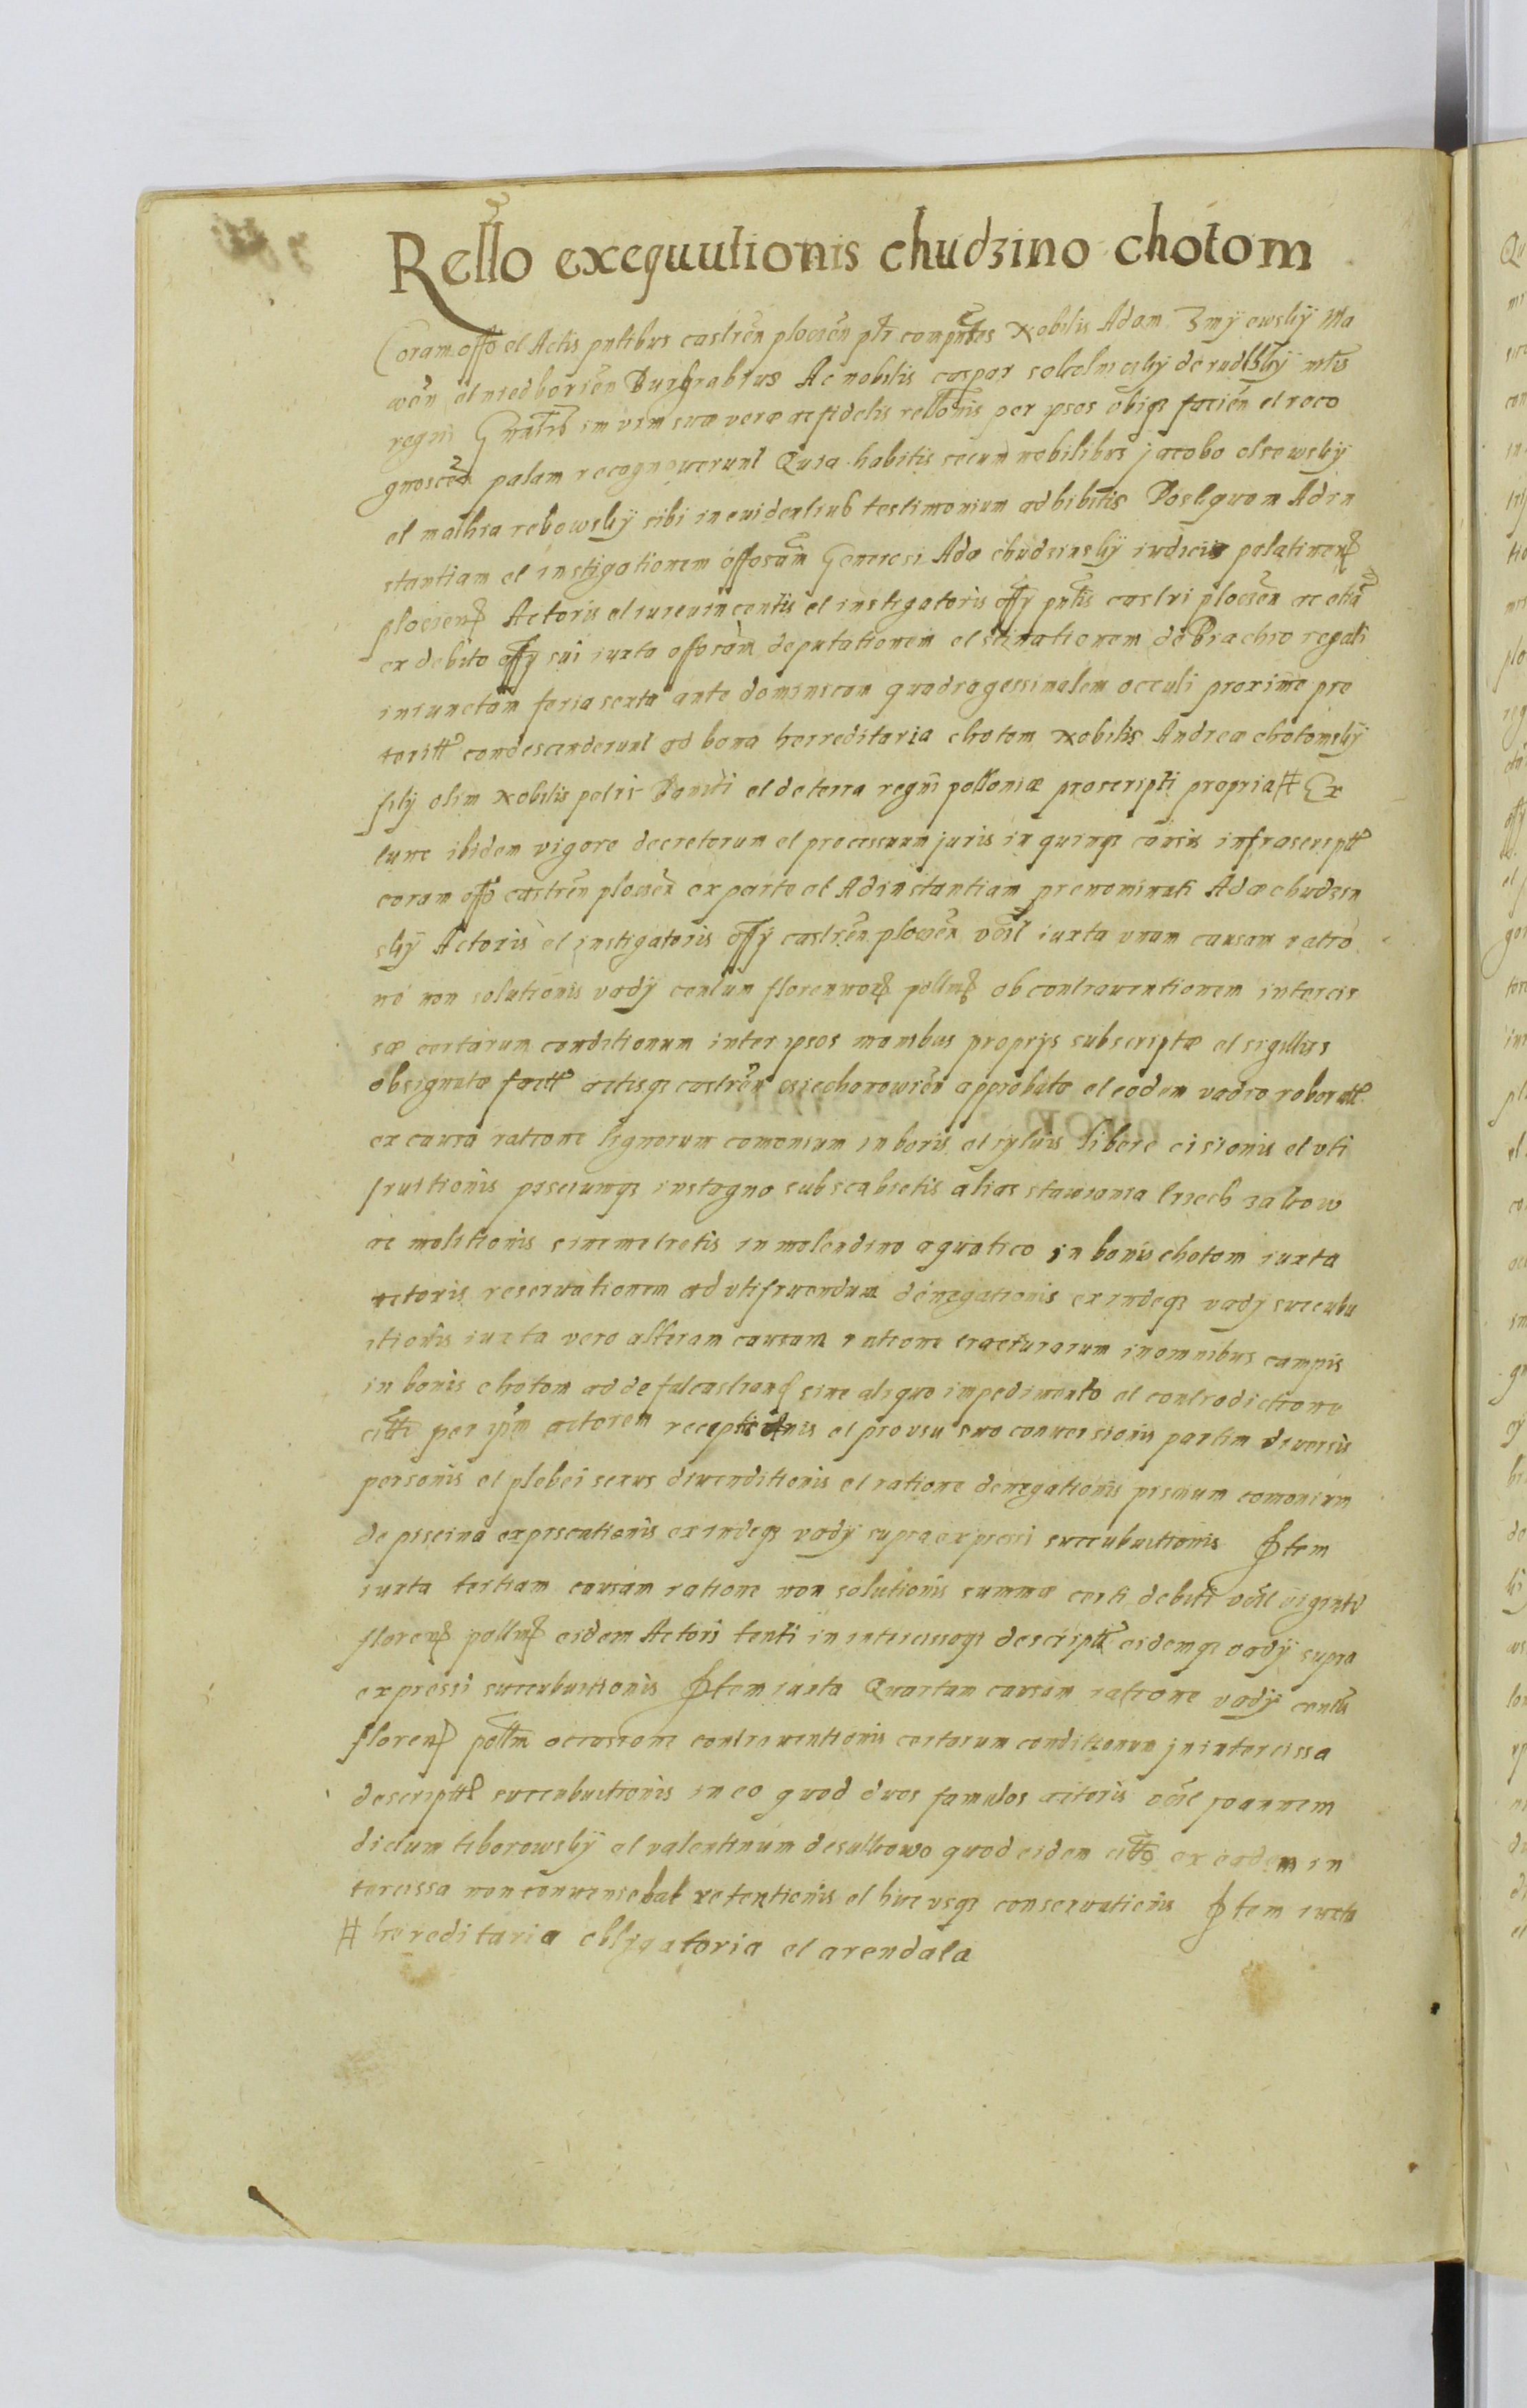 Rello exequutionis chudzino chotom
Coram offo et Actis pntibus castren plocen ptr compntes Nobilis Adam Zmyewsky Ma
won et niedborien Burgrabius Ac nobilis caspar sokolniczky de rudsky mts
regni Gnalis im vim suæ veræ ac fidelis rellonis per ipsos obiqz facien et reco
gnoscen palam recognoverunt Quia habitis secum nobilibus jacobo olsewsky
et mathia rebowsky sibi in evidentius testimonium adhibitis Postquam Ad in
stantiam et instigationem offosam Generosi Adæ chudzinsky iudicis palatinen
plocien Actoris et iurevincentis et instigatoris offy pntis castri plocen ac etia
ex debito offy sui iuxta offosam deputationem et stinationem de Brachio regali
iniunctam feria sexta ante dominicam quadragessimalem occuli proxime pre
teritt condescenderunt ad bona herreditaria chotom Nobilis Andreæ chotomsky
fily olim Nobilis petri Baniti et de terra regni polloniæ proscripti propria # Ex
tunc ibidem vigore decretorum et processuum juris in quinqz causis infrascriptt
coram offo castren plocen ex parte et Ad instantiam prenominati Adæ chudzin
sky Actoris et instigatoris offy castren plocen vcil iuxta unam causam ratio
ne non solutionis vady centum florennor pollm ob contraventionem intercis
sæ certarum conditionum inter ipsos manibus proprys subscriptæ et sigillis
obsignatæ factt actisqz castren ciechonowien approbatæ et eodem vadio roboratt
ex causa ratione lignorum comonium in boris et sylvis libere cisionis et uti
fruitionis pisciumqz in stagno sub scabietis alias stawiania liech zakow
ac molitionis sine metretis in molendino aquatico in bonis chotom iuxta
actoris reservationem ad utifruendum denegationis exindeqz vady succubu
itionis iuxta vero alteram causam ratione fracturarum in omnibus campis
in bonis chotom ad defalcastrand sine aliquo impedimento et contradictione
citti per ipm actorem receptionis et pro usu suo conversionis partim diversis
personis et plebei sexus divenditionis et ratione denegationis piscium comonium
de piscina expiscationis exindeqz vady supra expressi succubuitionis Item
iuxta tertiam causam ratione non solutionis summæ certi debiti vcil viginti
floren pollm eidem Actori tenti in intercissaqz descriptt eidemqz vady supra
expressi succubuitionis Item iuxta Quartam causam ratione vady centu
floren pollm occasione contraventionis certarum conditionum in intercissa
descriptt succubuitionis in eo quod duos famulos actoris vcil joannem
dictum tiborowsky et valentinum de sulkowo quod eidem citto ex eadem in
tercissa non conveniebat retentionis et huc usqz conservationis Item iuxta
# hereditaria obligatoria et arendata